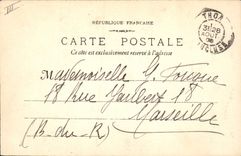 III
RÉPUBLIQUE FRANÇAISE
CARTE POSTALE
Ce côté est exclusivement réservé à l'adresse
Mademoiselle G. Fouque
18 Rue Jaubert 18
Marseille
(B-du-R)